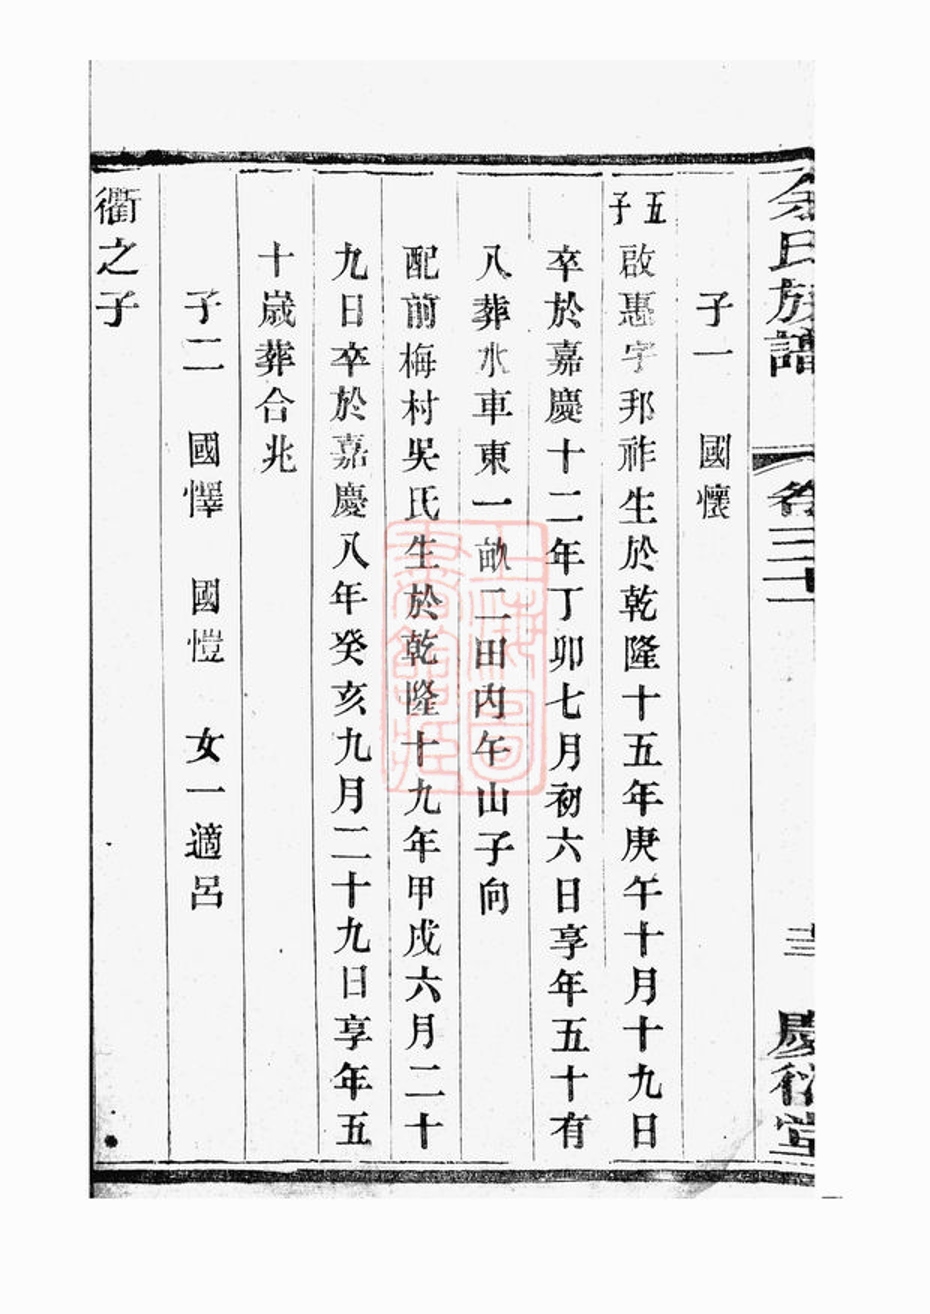 余氏族譜 卷三十一 十三 慶衍堂
子一 國懷
五子
啟惠字邦祚生於乾隆十五年庚午十月十九日
卒於嘉慶十二年丁卯七月初六日享年五十有
八葬水車東一畝二田內午山子向
配前梅村吳氏生於乾隆十九年甲戌六月二十
九日卒於嘉慶八年癸亥九月二十九日享年五
十歲葬合兆
子二 國懌 國愷 女一適呂
衢之子
上海圖
書館藏